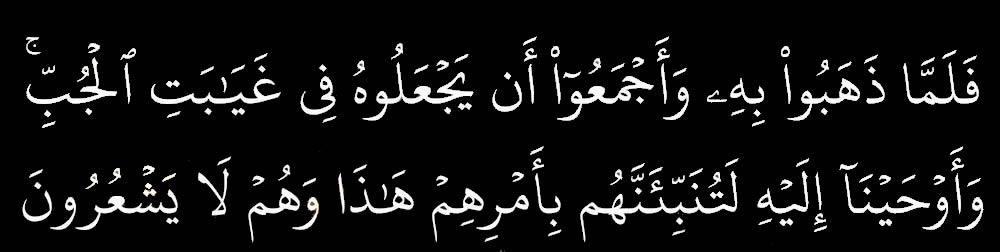 فَلَمَّا ذَهَبُوا۟ بِهِۦ وَأَجْمَعُوٓا۟ أَن يَجْعَلُوهُ فِى غَيَـٰبَتِ ٱلْجُبِّ ۚ
وَأَوْحَيْنَآ إِلَيْهِ لَتُنَبِّئَنَّهُم بِأَمْرِهِمْ هَـٰذَا وَهُمْ لَا يَشْعُرُونَ